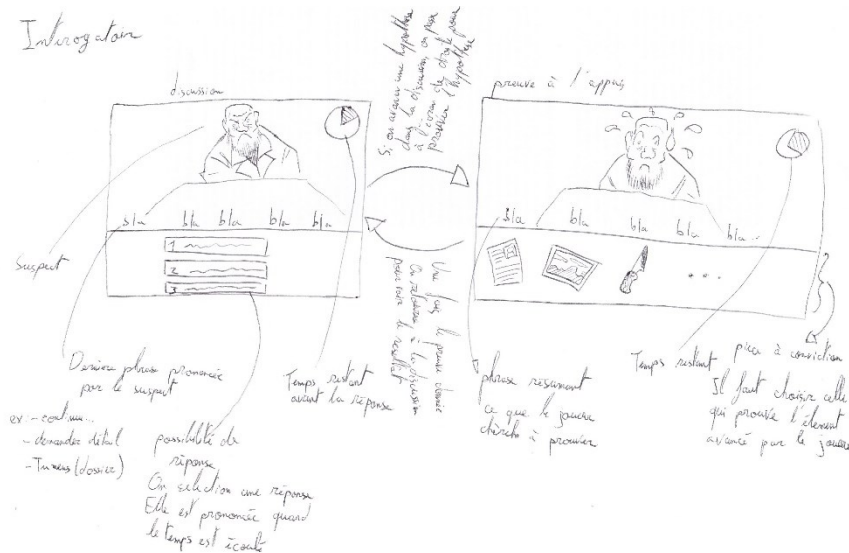 Interogatoire
discussion
bla bla bla bla bla
1
2
3
Suspect
Dernière phrase prononcée
par le suspect
ex: - continue...
- demander détail
- Tu mens (dossier)
possibilité de
réponse
On selection une réponse
Elle est prononcée quand
le temps est écoulé
Temps restant
avant la réponse
Si on avance une hypothèse
dans la discussion, on passe
à l'écran de droite pour
prouver l'hypothèse
Une fois la preuve donnée
On retourne à la discussion
pour voir le résultat
preuve à l'appuis
bla bla bla bla bla...
...
phrase resumant
ce que le joueur
cherche à prouver
Temps restant
piece à conviction
Il faut choisir celle
qui prouve l'élément
avancé par le joueur